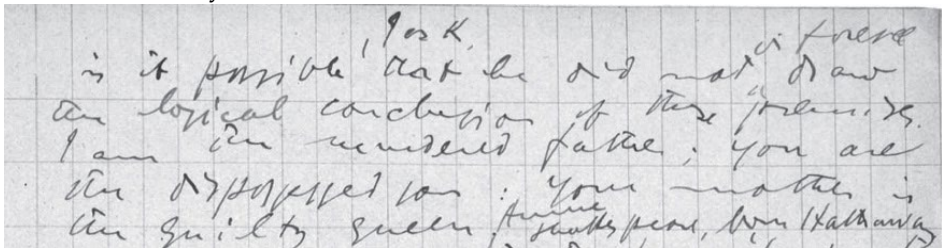 I ask, or foresee
is it possible that he did not draw
the logical conclusion of those premises.
I am the murdered father: you are
the dispossessed son: your mother is
the guilty queen Anne Shakespeare, born Hathaway